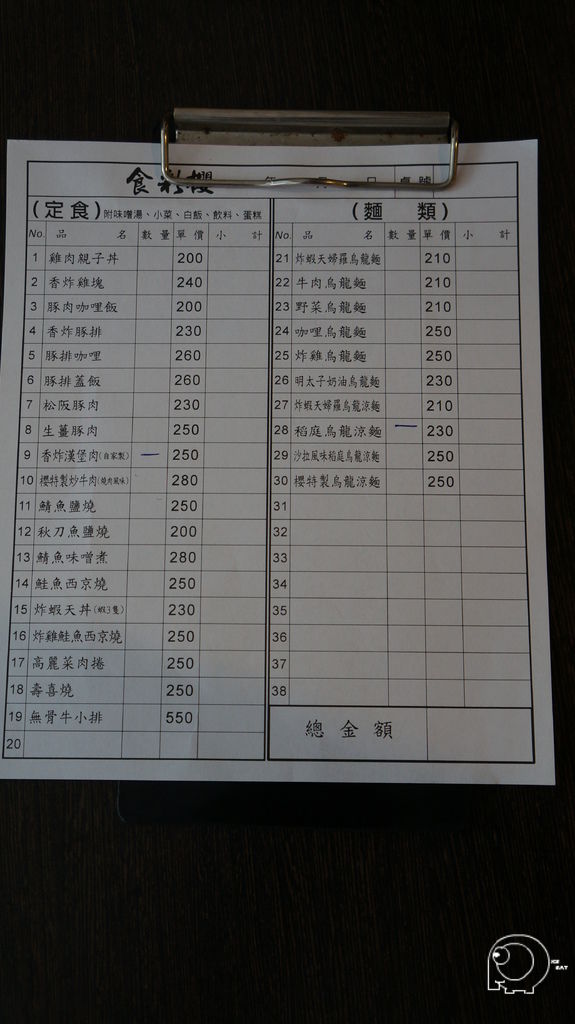 食彩櫻 年 月 日 桌號
(定食) 附味噌湯、小菜、白飯、飲料、蛋糕
No. 品 名 數量 單價 小 計
1 雞肉親子丼 200
2 香炸雞塊 240
3 豚肉咖哩飯 200
4 香炸豚排 230
5 豚排咖哩 260
6 豚排蓋飯 260
7 松阪豚肉 230
8 生薑豚肉 250
9 香炸漢堡肉(自家製) 一 250
10 櫻特製炒牛肉(燒肉風味) 280
11 鯖魚鹽燒 250
12 秋刀魚鹽燒 200
13 鯖魚味噌煮 280
14 鮭魚西京燒 250
15 炸蝦天丼(蝦3隻) 230
16 炸雞鮭魚西京燒 250
17 高麗菜肉捲 250
18 壽喜燒 250
19 無骨牛小排 550
20
(麵 類)
No. 品 名 數量 單價 小 計
21 炸蝦天婦羅烏龍麵 210
22 牛肉烏龍麵 210
23 野菜烏龍麵 210
24 咖哩烏龍麵 250
25 炸雞烏龍麵 250
26 明太子奶油烏龍麵 230
27 炸蝦天婦羅烏龍涼麵 210
28 稻庭烏龍涼麵 一 230
29 沙拉風味稻庭烏龍涼麵 250
30 櫻特製烏龍涼麵 250
31
32
33
34
35
36
37
38
總金額
ICE
EAT